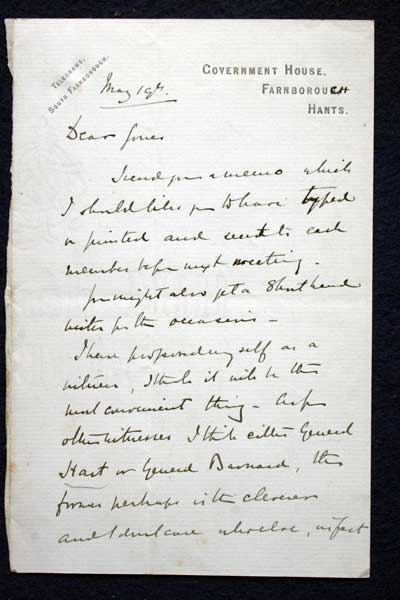 TELEGRAMS,
SOUTH FARNBOROUGH.
GOVERNMENT HOUSE,
FARNBOROUGH
HANTS.
May 19th.
Dear Jones
I send you a memo which
I should like you to have typed
or printed and sent to each
member before next meeting.
You might also get a Shorthand
writer for the occasion –
I have proposed myself as a
witness, I think it will be the
most convenient thing – As for
other witnesses I think either General
Hart or General Barnard, the
former perhaps is the cleverer
and I don't care who else, in fact